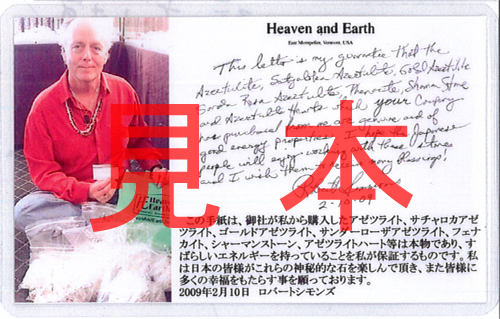 Heaven and Earth
East Montpelier, Vermont, USA
This letter is my guarantee that the
Azeztulite, Satyaloka Azeztulite, Gold Azeztulite
Sanda Rosa Azeztulite, Phenacite, Shaman Stone
and Azeztulite Hearts which your Company
has purchased from me are genuine and of
good energy properties. I hope the Japanese
people will enjoy working with these stones
and I wish them to receive many blessings!
Robert Simmons
2-10-09
見本
Heaven
Earth
この手紙は、御社が私から購入したアゼツライト、サチャロカアゼ
ツライト、ゴールドアゼツライト、サンダーローザアゼツライト、フェナ
カイト、シャーマンストーン、アゼツライトハート等は本物であり、す
ばらしいエネルギーを持っていることを私が保証するものです。私
は日本の皆様がこれらの神秘的な石を楽しんで頂き、また皆様に
多くの幸福をもたらす事を願っております。
2009年2月10日　ロバートシモンズ